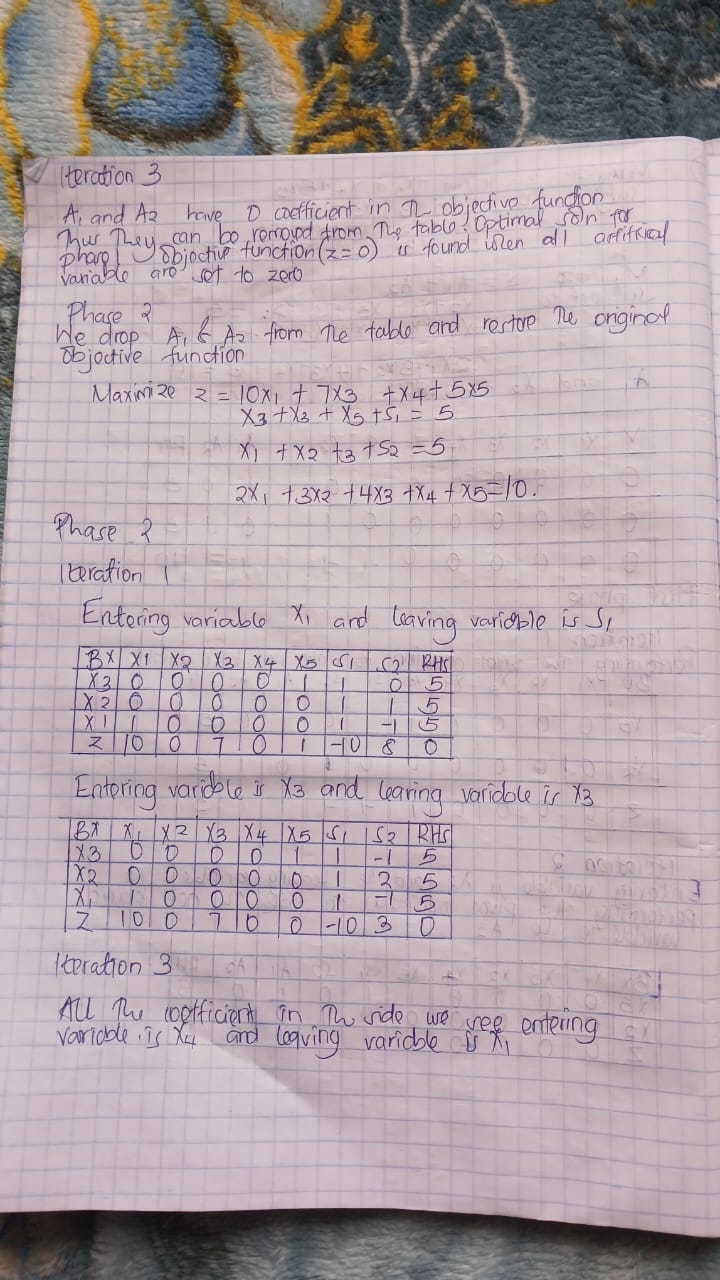 Iteration 3
A1 and A2 have 0 coefficient in The objective function
Thus They can be removed from The table. Optimal soln for
phase 1 objective function (z=0) is found when all artificial
variable are set to zero
Phase 2
We drop A1 & A2 from the table and restore The original
Objective function
Maximize z = 10x1 + 7x3 + x4 + 5x5
x3 + x3 + x5 + S1 = 5
x1 + x2 + 3 + S2 = 5
2x1 + 3x2 + 4x3 + x4 + x5 = 10.
Phase 2
Iteration 1
Entering variable X1 and leaving variable is S1
BX X1 X2 X3 X4 X5 S1 S2 RHS
X3 0 0 0 0 1 1 0 5
X2 0 0 0 0 0 1 1 5
X1 1 0 0 0 0 1 -1 5
Z 10 0 7 0 1 -10 8 0
Entering varible is X3 and leaving variable is X3
BX X1 X2 X3 X4 X5 S1 S2 RHS
X3 0 0 0 0 1 1 -1 5
X2 0 0 0 0 0 1 2 5
X1 1 0 0 0 0 1 -1 5
Z 10 0 7 0 0 -10 3 0
Iteration 3
All The coefficient in The side we see entering
variable is X4 and leaving variable is X1